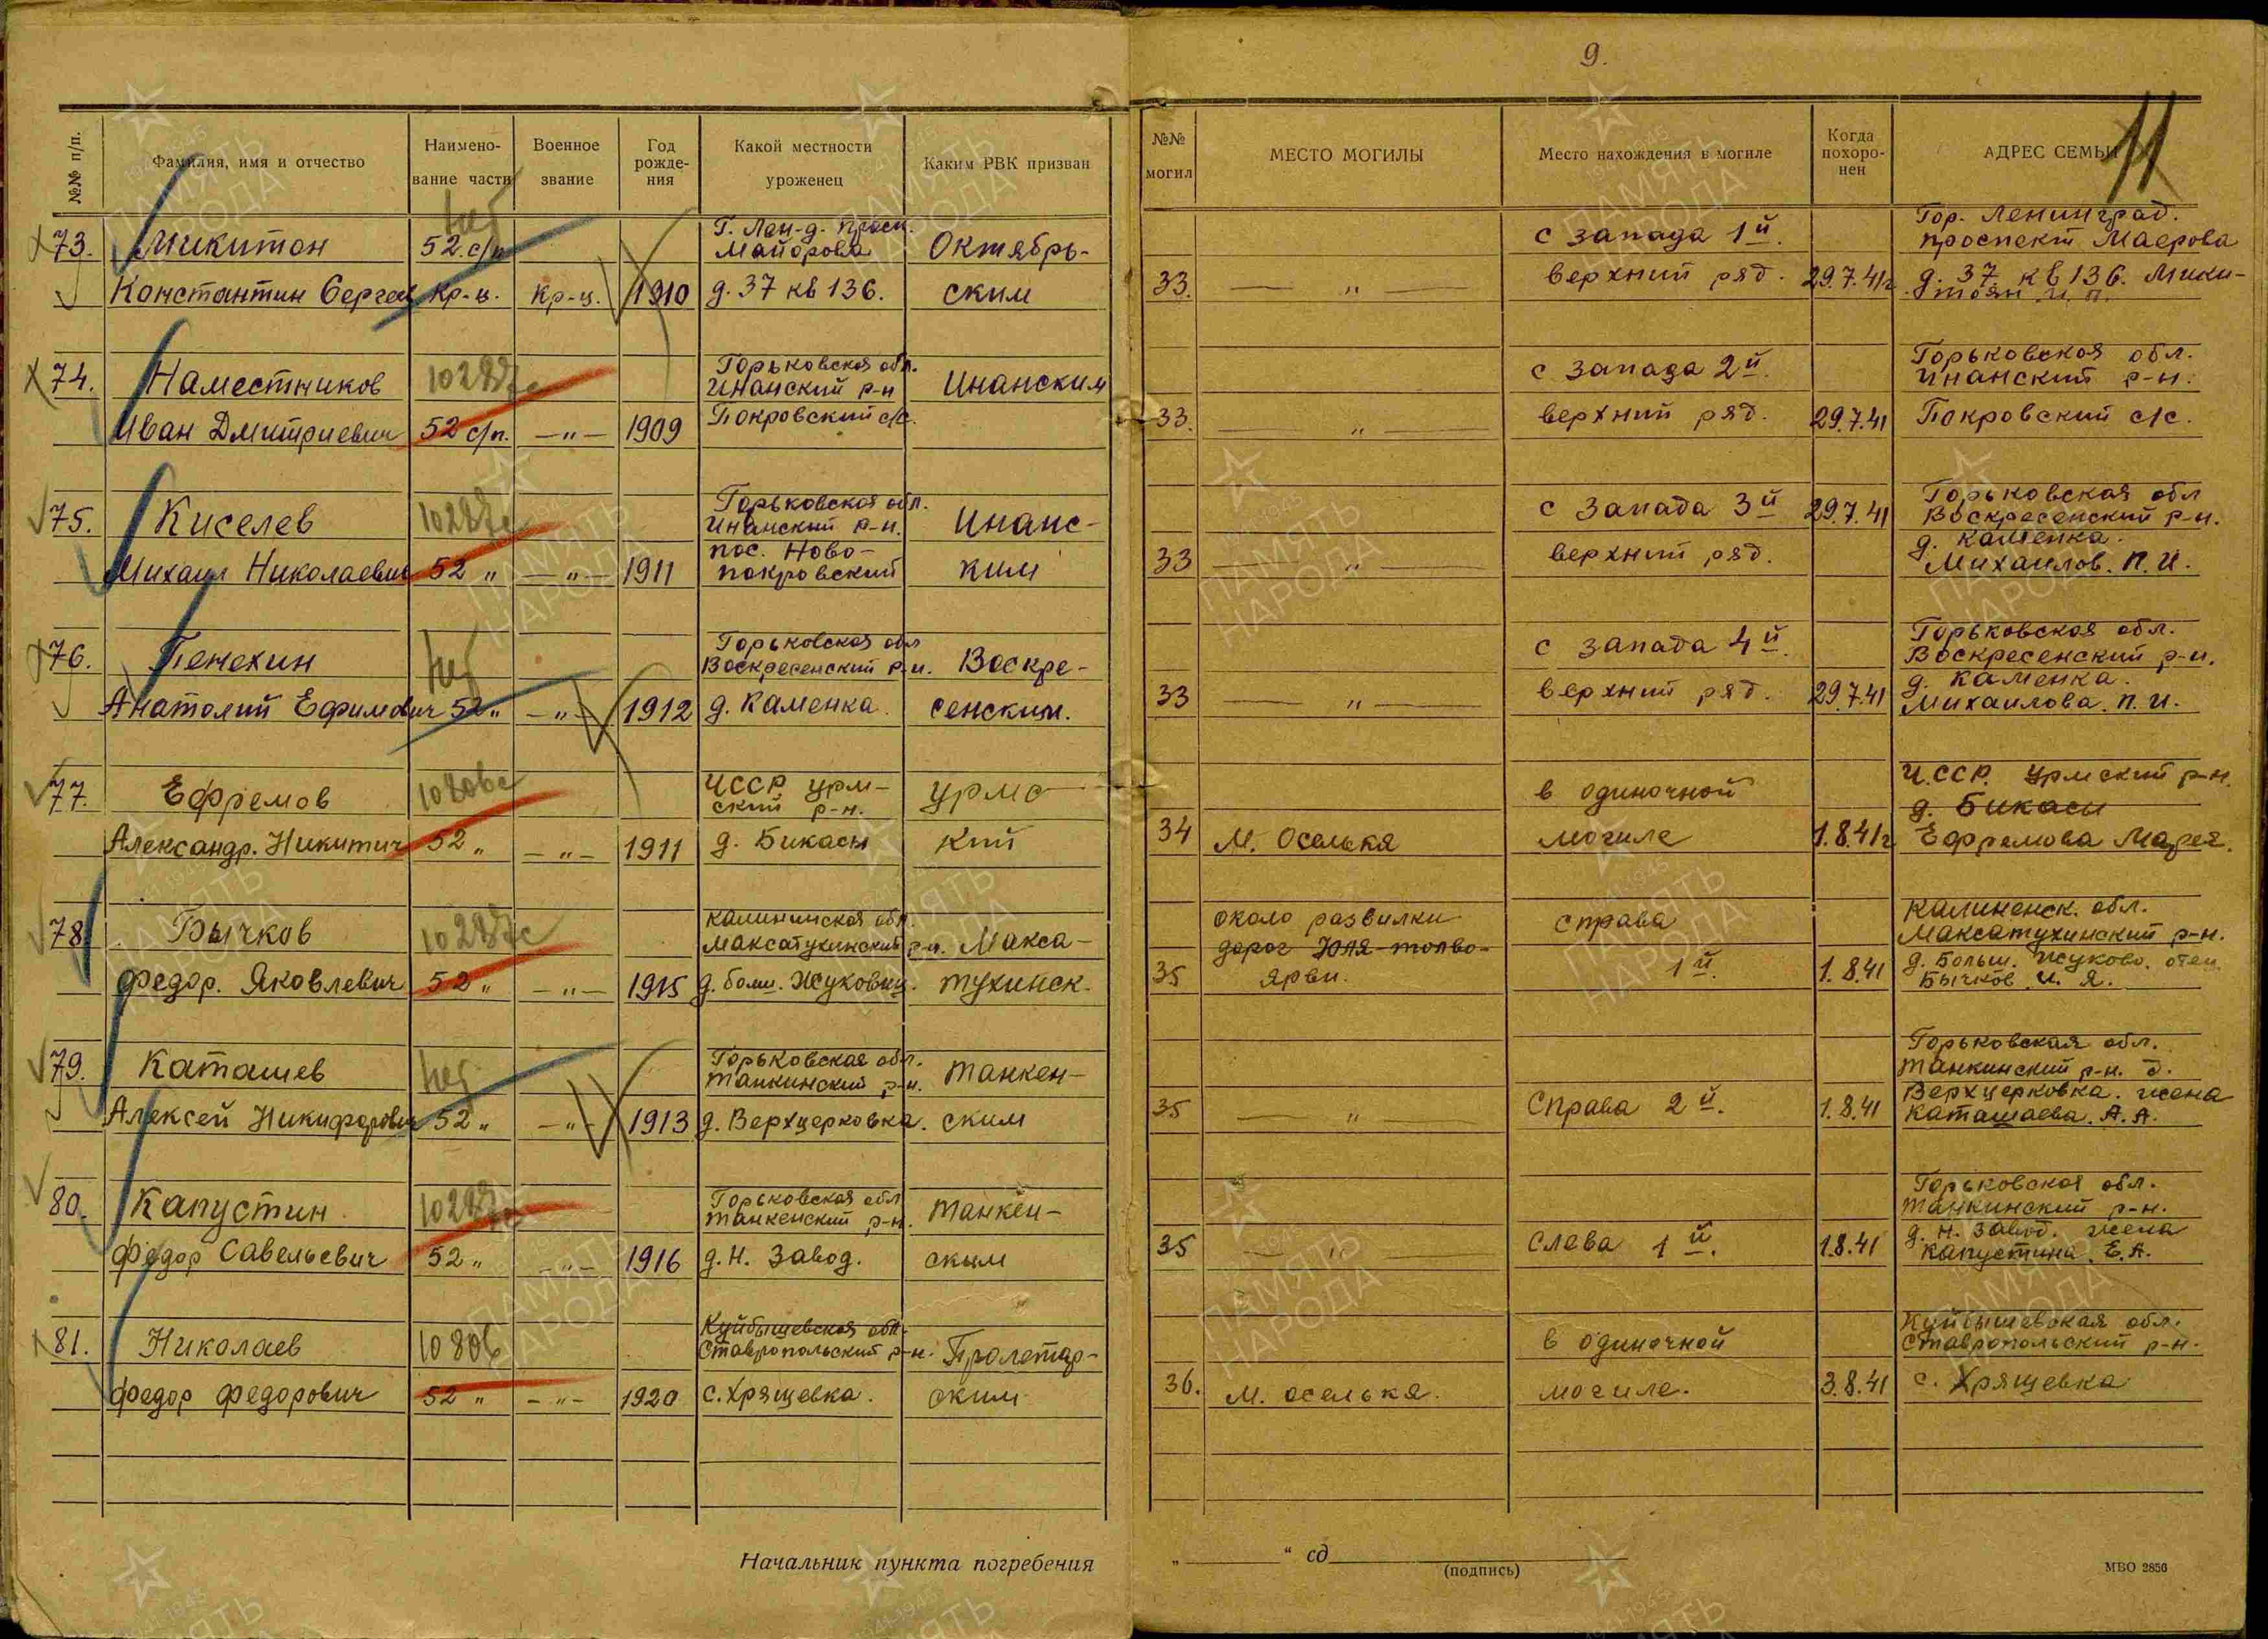 9.
11
№№ п/п.
Фамилия, имя и отчество
Наимено-
вание части
Военное
звание
Год
рожде-
ния
Какой местности
уроженец
Каким РВК призван
№№
могил
МЕСТО МОГИЛЫ
Место нахождения в могиле
Когда
похоро-
нен
АДРЕС СЕМЬИ
73.
Микитон
Константин Сергеев
нет
52 с/п
Кр-ц.
Кр-ц.
1910
Г. Лен-д. Просп.
Майорова
д. 37 кв 136.
Октябрь-
ским
33.
— " —
с запада 1й.
верхний ряд.
29.7.41г
Гор. Ленинград.
проспект Маерова
д. 37. кв 136. Мики-
тоян И. П.
74.
Наместников
Иван Дмитриевич
1028
52 с/п.
— " —
1909
Горьковская обл.
Инанский р-н
Покровский с/с.
Инанским
33.
— " —
с запада 2й.
верхний ряд.
29.7.41
Горьковская обл.
Инанский р-н.
Покровский с/с.
75.
Киселев
Михаил Николаевич
1028
52 "
— " —
1911
Горьковская обл.
Инанский р-н.
пос. Ново-
покровский
Инанс-
ким
33
— " —
с запада 3й
верхний ряд.
29.7.41
Горьковская обл
Воскресенский р-н.
д. Каменка.
Михаилов. П. И.
76.
Пенехин
Анатолий Ефимович
нет
52 "
— " —
1912
Горьковская обл
Воскресенский р-н.
д. Каменка.
Воскре-
сенским.
33
— " —
с запада 4й.
верхний ряд.
29.7.41
Горьковская обл.
Воскресенский р-н.
д. Каменка.
Михаилова. П. И.
77.
Ефремов
Александр. Никитич
10806с
52 "
— " —
1911
ЧССР Урм-
ский р-н.
д. Бикасы
Урмс
кий
34
М. Оселькя
в одиночной
могиле
1.8.41г
Ч.ССР. Урмский р-н.
д. Бикасы
Ефремова Марея.
78.
Бычков
Федор. Яковлевич
1028
52 "
— " —
1915
Калининская обл.
Максатухинский р-н.
д. болш. Жуковка.
Макса-
тухинск.
35
около развилки
дорог Юля-толво-
ярви.
справа
1й.
1.8.41
Калиненск. обл.
Максатухинский р-н.
д. Больш. Жуково. отец
Бычков И. Я.
79.
Каташев
Алексей Никифорович
нет
52 "
— " —
1913
Горьковская обл.
Танкинский р-н.
д. Верхцерковка.
Танкен-
ским
35
— " —
Справа 2й.
1.8.41
Горьковская обл.
Танкинский р-н. д.
Верхцерковка. жена
Каташаева. А. А.
80.
Капустин
Федор Савельевич
1028
52 "
— " —
1916
Горьковская обл
Танкенский р-н.
д. Н. Завод.
Танкен-
ским
35
— " —
Слева 1й.
1.8.41
Горьковская обл.
Танкинский р-н.
д. Н. Завод. жена
Капустина. Е. А.
81.
Николаев
Федор Федорович
10806
52 "
— " —
1920
Куйбышевская обл.
Ставропольский р-н.
с. Хрящевка.
Пролетар-
ским
36.
М. оселькя.
в одиночной
могиле.
3.8.41
Куйбышевская обл.
Ставропольский р-н.
с. Хрящевка
Начальник пункта погребения
„ “ сд
(подпись)
МВО 2856
ПАМЯТЬ
НАРОДА
1941-1945